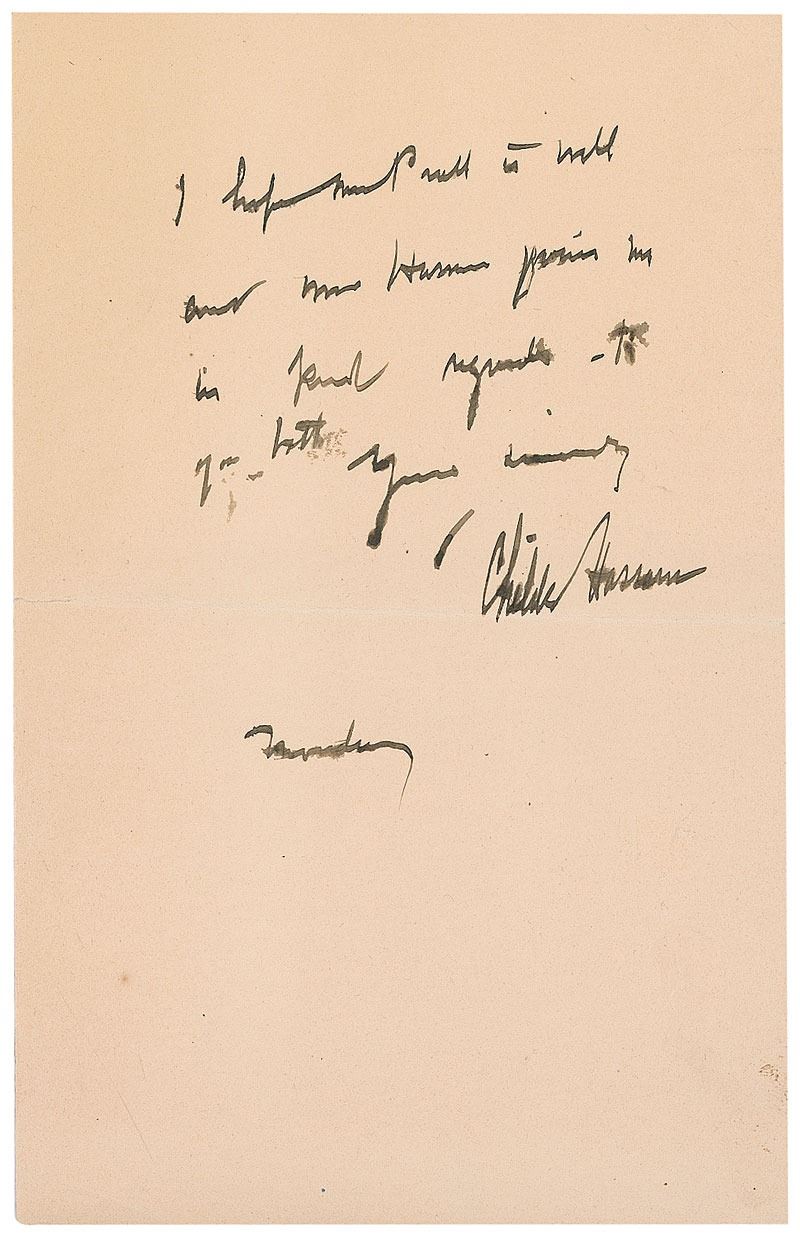 I hope Mrs Pratt is well
and Mrs Hassam joins me
in kind regards to
you both Yours sincerely
Childe Hassam
Thursday